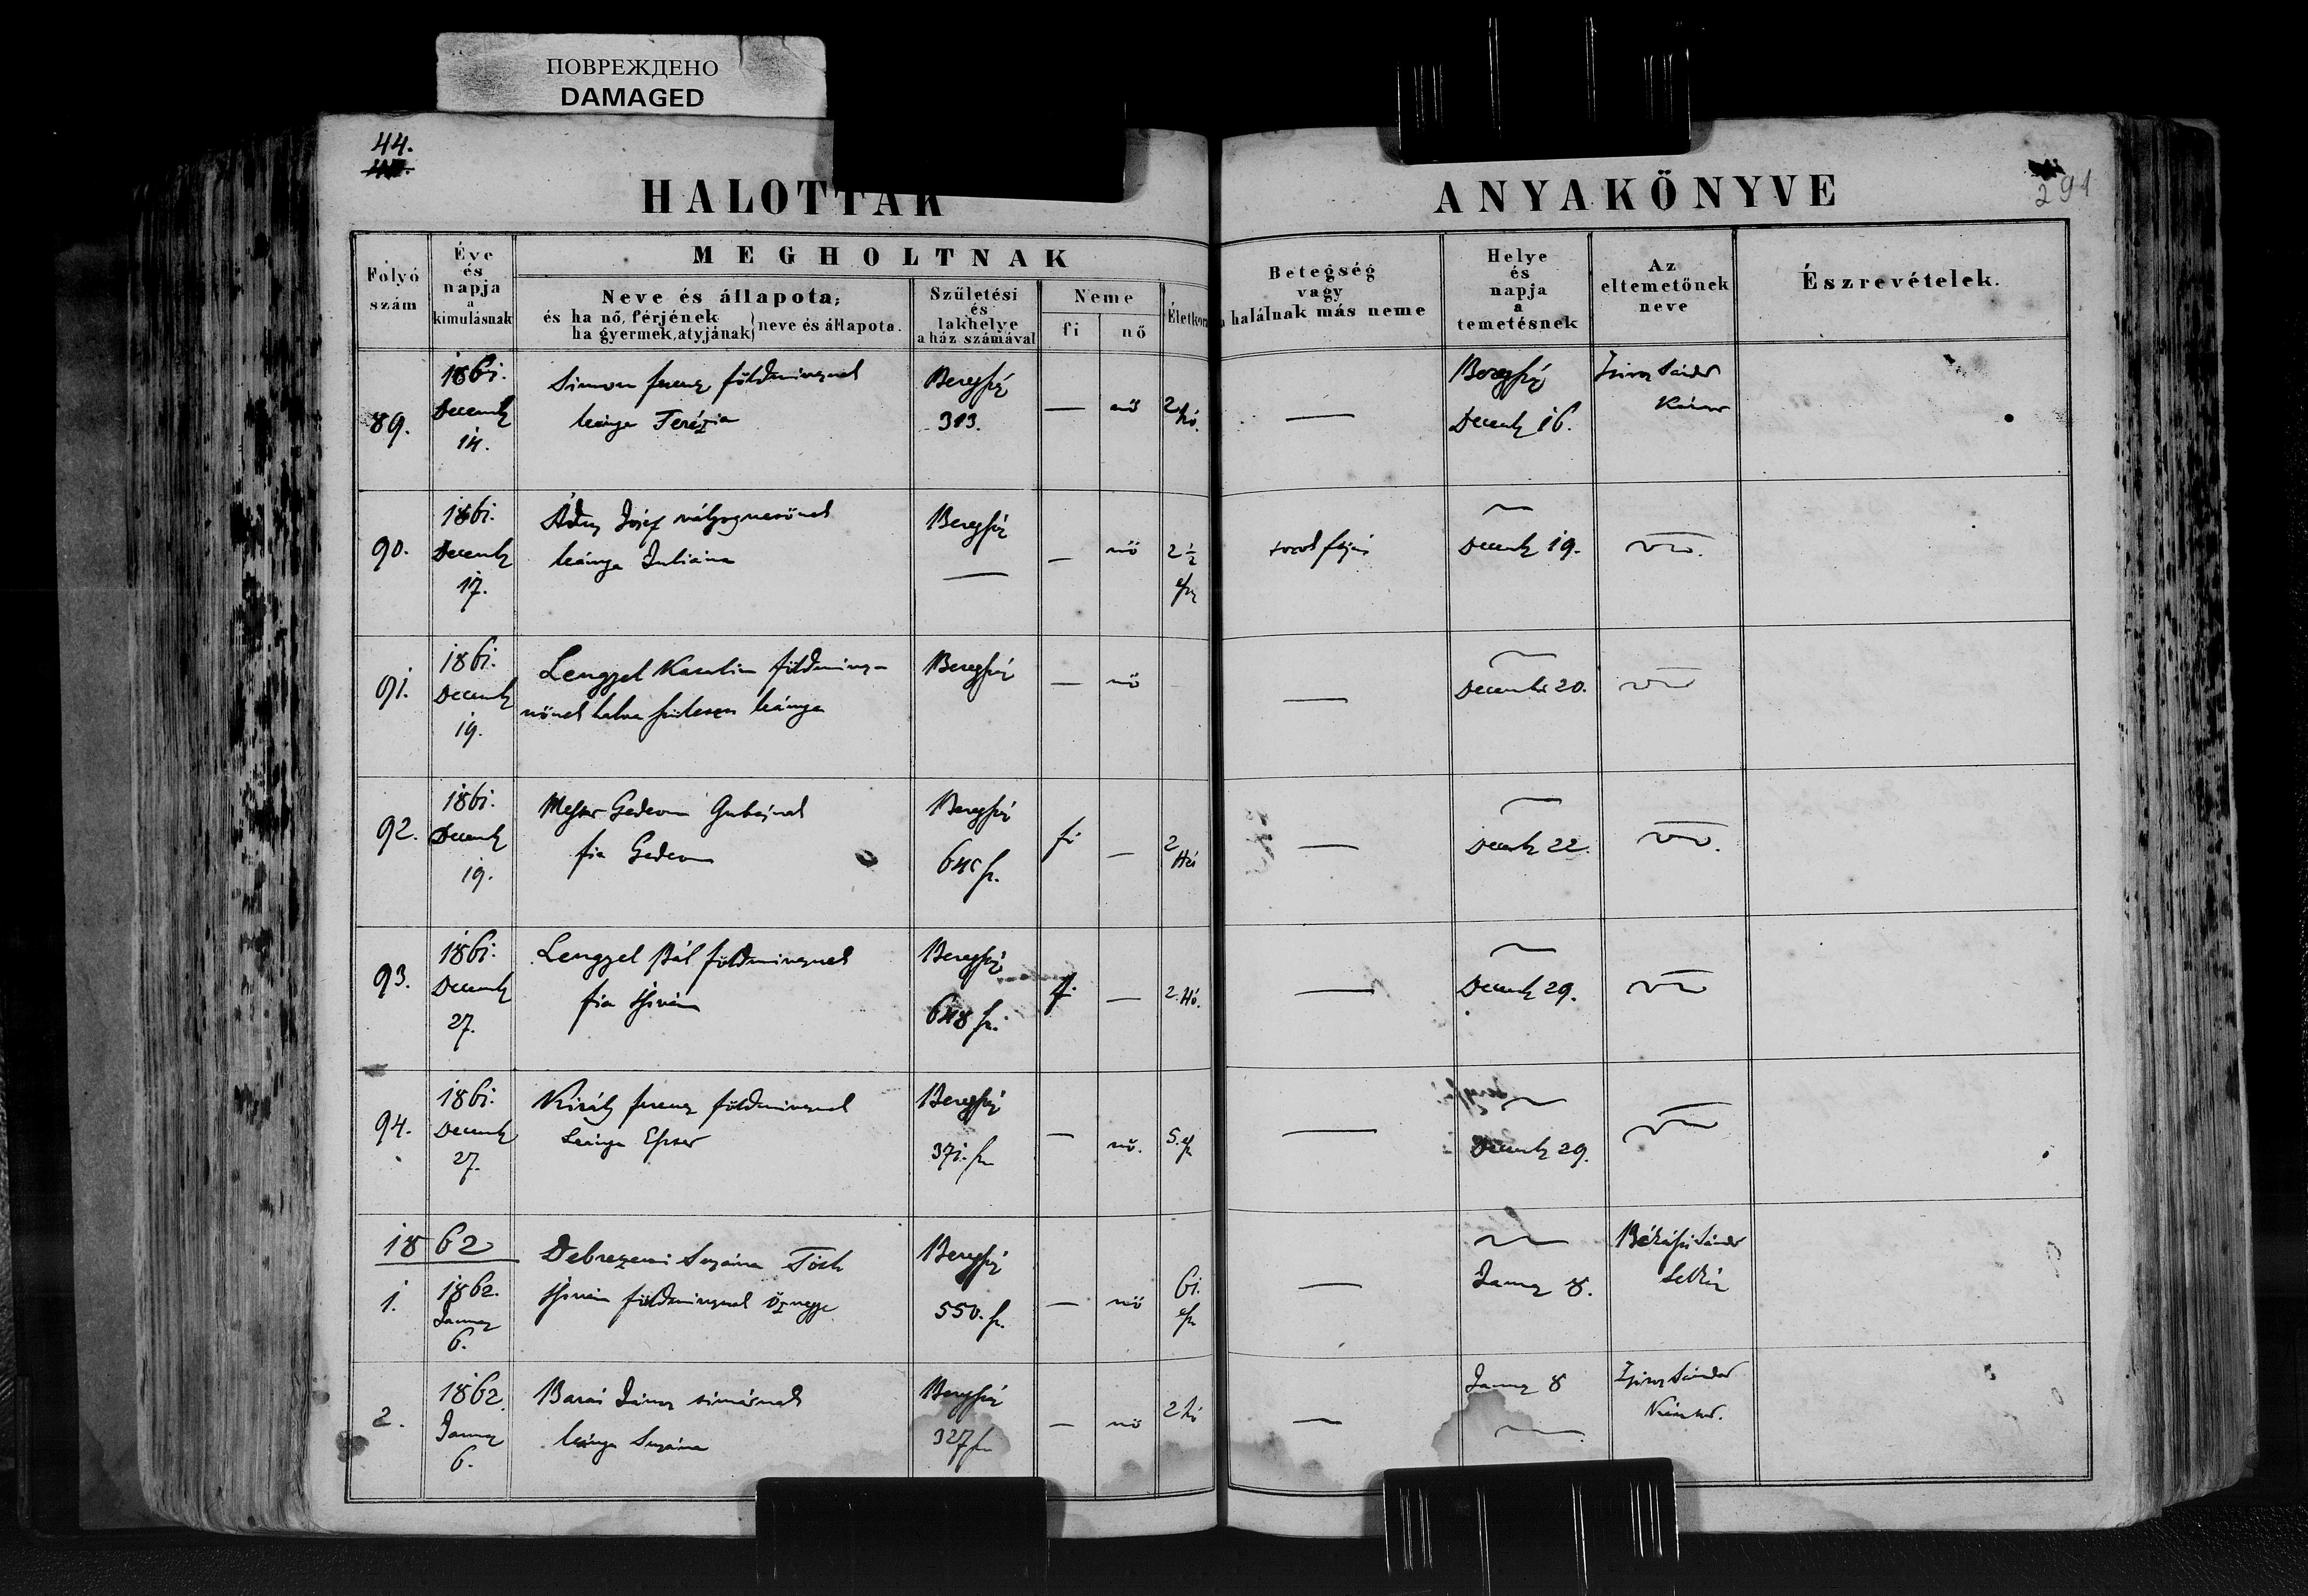 ПОВРЕЖДЕНО
DAMAGED
44.
291
HALOTTAK ANYAKÖNYVE
Folyó szám
Éve és napja a kimulásnak
MEGHOLTNAK
Neve és állapota;
és ha nő, férjének
ha gyermek, atyjának} neve és állapota.
Születési és lakhelye a ház számával
Neme
fi
nő
Életkora
Betegség vagy a halálnak más neme
Helye és napja a temetésnek
Az eltemetőnek neve
Észrevételek.
89.
1861.
Decemb
14.
Simon Ferencz földmivesnek
leánya Terézia
Beregsz
313.
—
nő
2 hó.
—
Beregsz
Decemb 16.
Sándor
90.
1861.
Decemb
17.
József
leánya Juliána
Beregsz
—
—
nő
2 1/2
torok fájás
Decemb 19.
91.
1861.
Decemb
19.
Lengyel Karolin földmives-
nőnek halva született leánya
Beregsz
—
nő
—
December 20.
92.
1861.
Decemb
19.
Gedeon Gubásnak
fia Gedeon
Beregsz
645 sz.
fi
—
2 Hó
—
Decemb 22.
93.
1861.
Decemb
27.
Lengyel Pál földmivesnek
fia István
Beregsz
648 sz.
fi
—
2. Hó.
—
Decemb 29.
94.
1861.
Decemb
27.
Király Ferencz földmivesnek
Leánya Eszter
Beregsz
371. sz
—
nő.
5. é
—
Decemb 29.
1862
1.
1862.
Januar
6.
Debreczeni Suzána Tóth
István földmivesnek özvegye
Beregsz
550. sz.
—
nő
61.
—
Januar 8.
Sándor
2.
1862.
Januar
6.
János
leánya Suzána
Beregsz
327 sz
—
nő
2 hó
—
Januar 8
Sándor